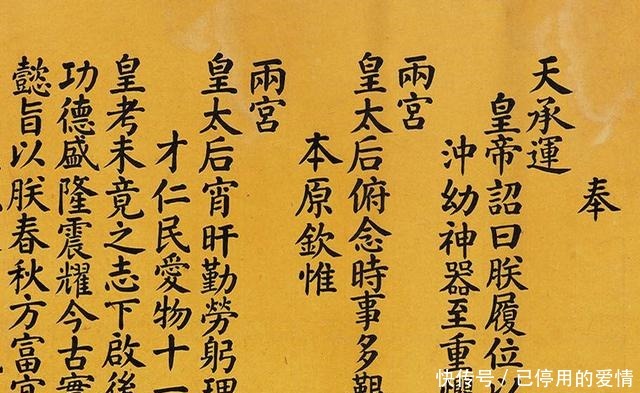 奉
天承運
皇帝詔曰朕履位以
沖幼神器至重懼
兩宮
皇太后俯念時事多艱
本原欽惟
兩宮
皇太后宵旰勤勞躬理
才仁民愛物十一
皇考未竟之志下啟後
功德盛隆震耀今古實
懿旨以朕春秋方富宜
快传号/已停用的爱情